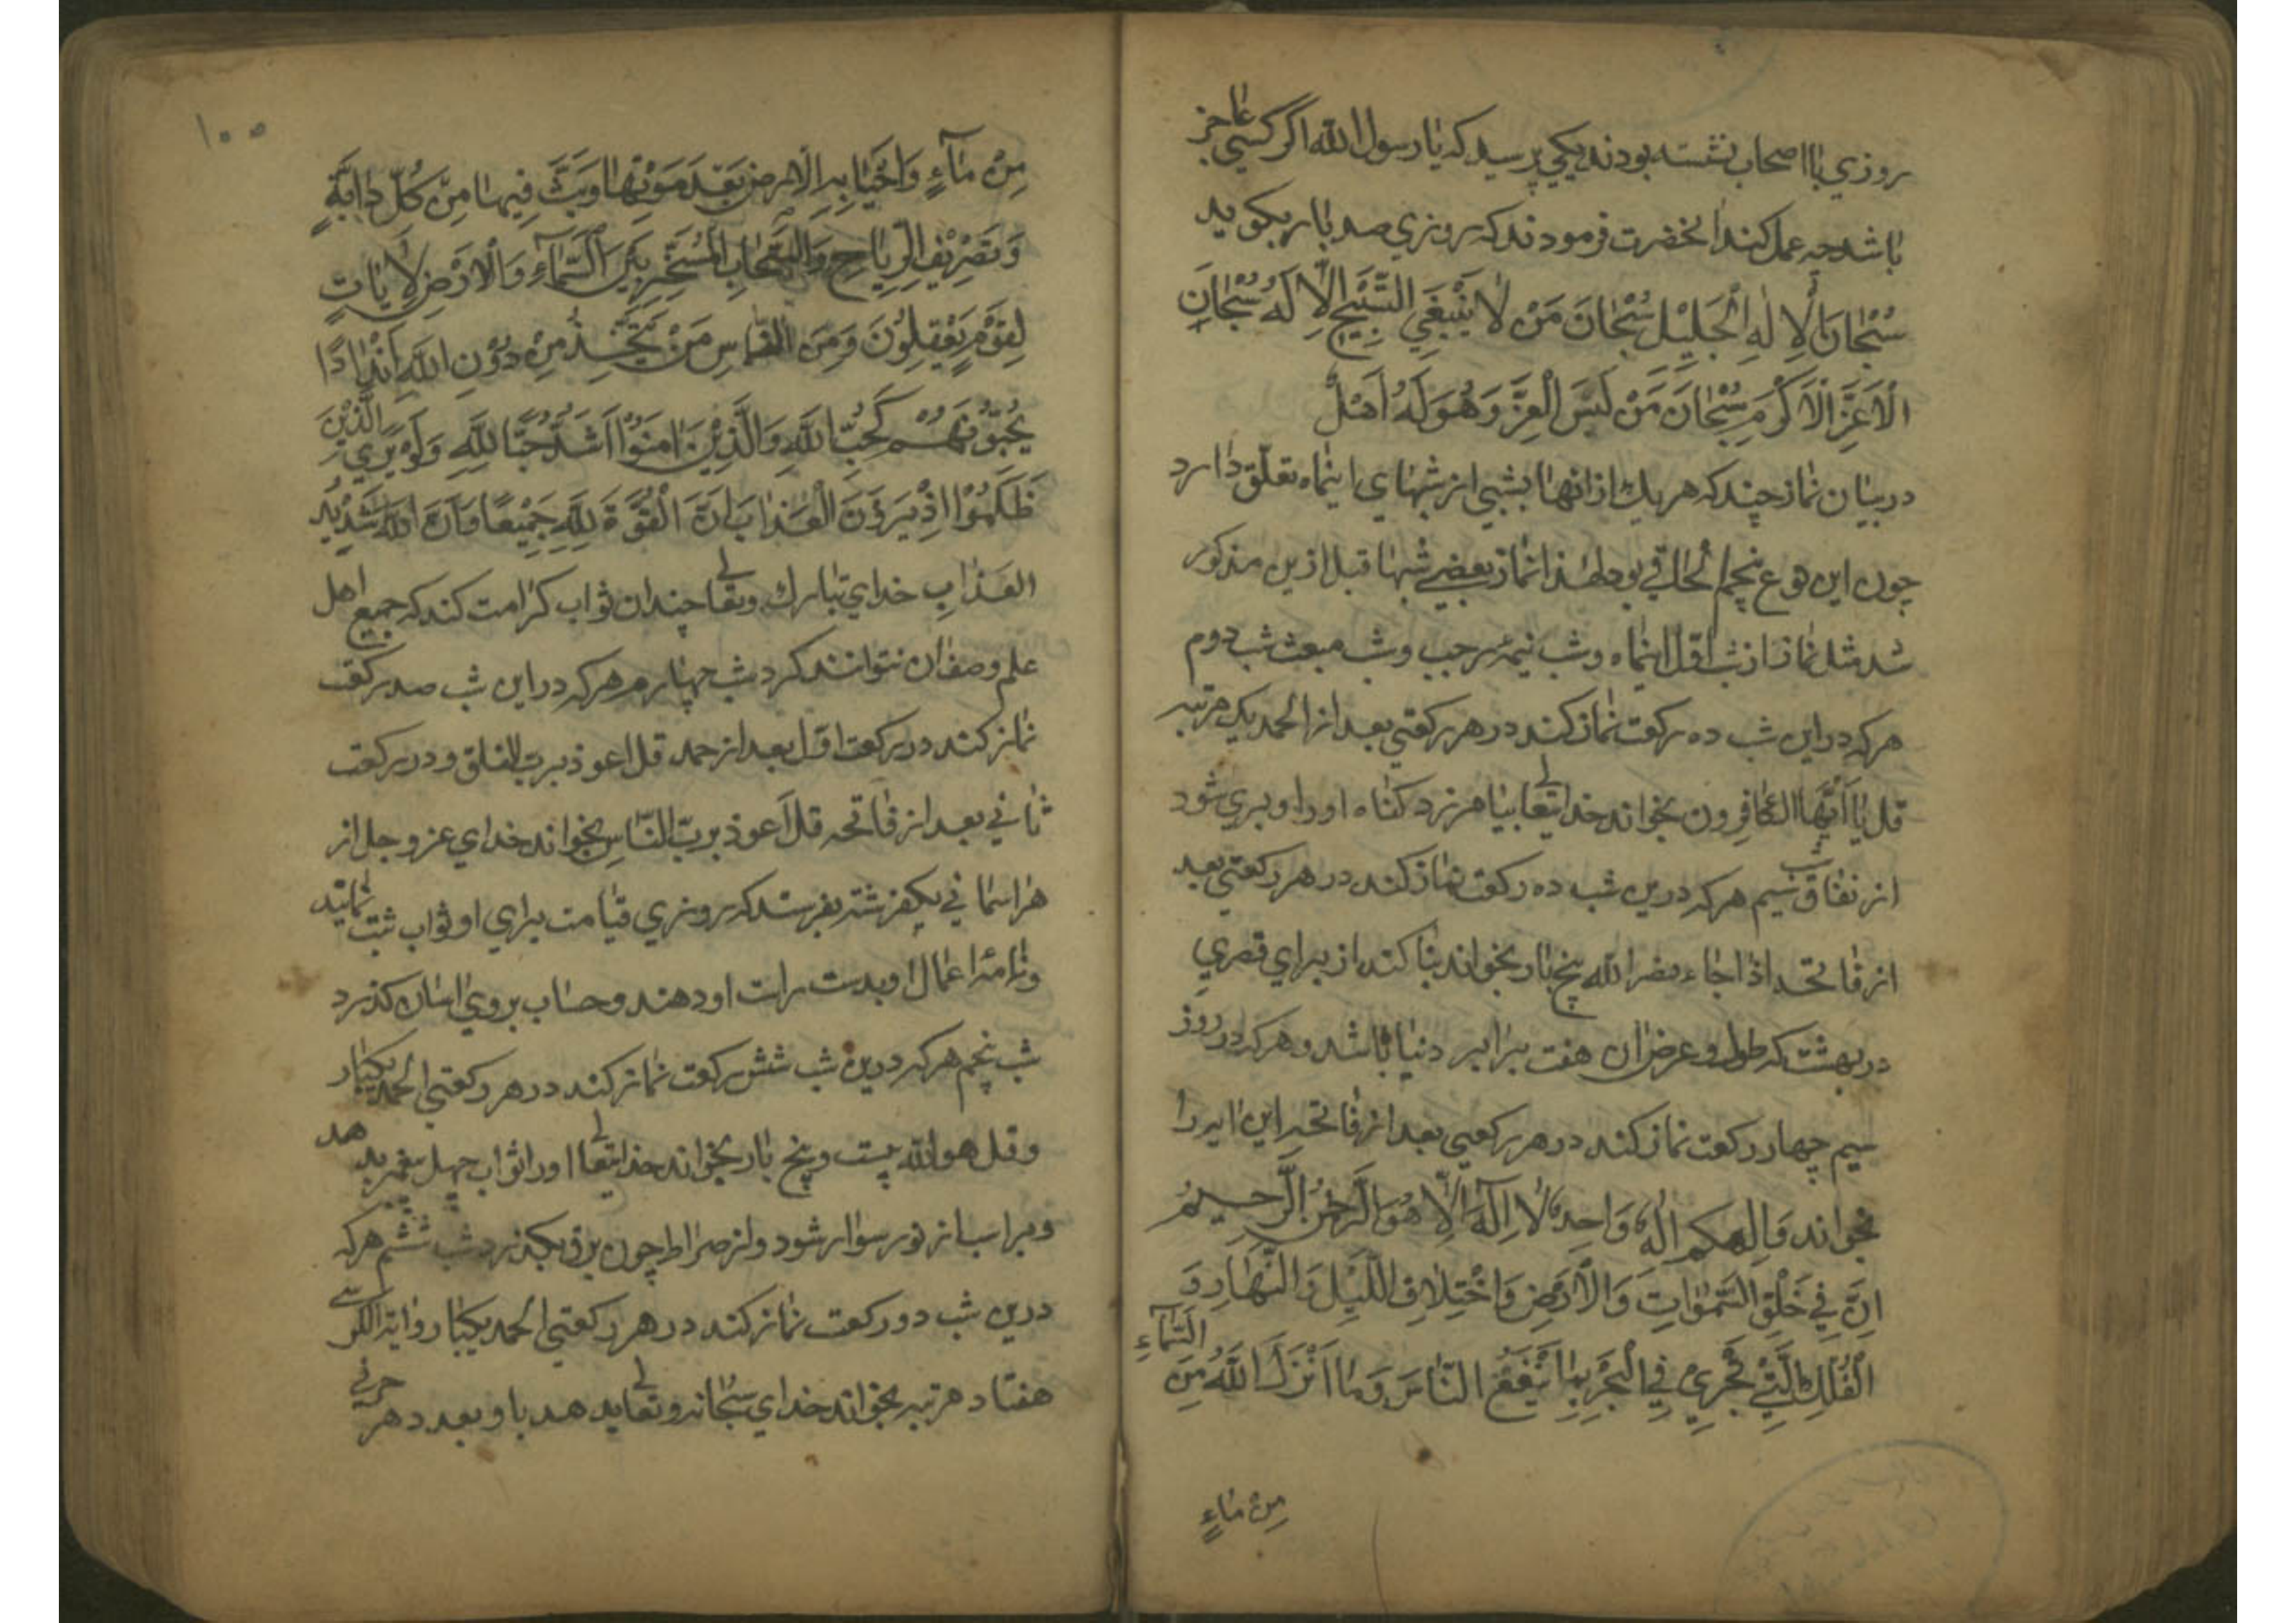 روزي با اصحاب نشسته بودند يكي پرسيد كه يا رسول الله اگر كسي عاجز
باشد چه عمل كند انحضرت فرمودند كه روزي صد بار بكويد
سُبْحَانَ الْاِلٰهِ الْجَلِيْلِ سُبْحَانَ مَنْ لَا يَنْبَغِي التَّسْبِيْحُ اِلَّا لَهُ سُبْحَانَ
الْاَعَزِّ الْاَكْرَمِ سُبْحَانَ مَنْ لَبِسَ الْعِزَّ وَهُوَ لَهُ اَهْلٌ
در بيان نماز چند كه هر يك از انها بشبي از شبهاي اينماه تعلّق دارد
چون اين نوع پنجم الحاقي بود لهذا نماز بعضي شبها قبل ازين مذكور
شد مثل نماز شب اوّل اينماه و شب نيمهٔ رجب و شب مبعث شب دوم
هركه در اين شب ده ركعت نماز كند در هر ركعتي بعد از الحمد يك مرتبه
قل يا اَيُّهَا الكافِرون بخواند خدايتعالي بيامرزد كناه او را و بري شود
از نفاق شب سيم هركه درين شب ده ركعت نماز كند در هر ركعتي بعد
از فاتحه اذا جاء نصر الله پنج بار بخواند بنا كند از براي قصري
در بهشت كه طول و عرض ان هفت برابر دنيا باشد و هركه در روز
سيم چهار ركعت نماز كند در هر ركعتي بعد از فاتحه اين ايه را
بخواند وَاِلٰهكم اِلٰهٌ وَاحِدٌ لَا اِلٰهَ اِلَّا هُوَ الرَّحْمٰنُ الرَّحِيمُ
اِنَّ فِي خَلْقِ السَّمٰوَاتِ وَالْاَرْضِ وَاخْتِلَافِ اللَّيْلِ وَالنَّهَارِ وَ
الْفُلْكِ الَّتِيْ تَجْرِيْ فِي الْبَحْرِ بِمَا يَنْفَعُ النَّاسَ وَمَا اَنْزَلَ اللّٰهُ مِنَ السَّمَاءِ
مِنْ مَاءٍ
١٠٥
مِنْ مَآءٍ فَاَحْيَا بِهِ الْاَرضَ بَعْدَ مَوْتِهَا وَبَثَّ فِيهَا مِنْ كُلِّ دَابَّةٍ
وَتَصْرِيْفِ الرِّيَاحِ وَالسَّحَابِ الْمُسَخَّرِ بَيْنَ السَّمَآءِ وَالْاَرْضِ لَاٰيَاتٍ
لِقَوْمٍ يَعْقِلُوْنَ وَمِنَ النَّاسِ مَنْ يَتَّخِذُ مِنْ دُوْنِ اللّٰهِ اَنْدَادًا
يُحِبُّوْنَهُمْ كَحُبِّ اللّٰهِ وَالَّذِيْنَ اٰمَنُوْا اَشَدُّ حُبًّا لِلّٰهِ وَلَوْ يَرَي الَّذِيْنَ
ظَلَمُوْا اِذْ يَرَوْنَ الْعَذَابَ اَنَّ الْقُوَّةَ لِلّٰهِ جَمِيْعًا وَاَنَّ اللّٰهَ شَدْيْدُ
العَذَابِ خداي تبارك وتعالي چندان ثواب كرامت كند كه جميع اهل
علم وصف ان نتوانند كرد شب چهارم هركه در اين شب صد ركعت
نماز كند در ركعت اوّل بعد از حمد قل اعوذ برب الفلق و در ركعت
ثاني بعد از فاتحه قل اَعوذ بربّ النّاسِ بخواند خداي عز و جل از
هر اسماني يكفرشته بفرستد كه روزي قيامت براي او ثواب ثبت نمايند
و نامهٔ اعمال او بدست راست او دهند و حساب بروي اسان كذرد
شب پنجم هركه درين شب شش ركعت نماز كند در هر ركعتي الحمد يكبار
و قل هو الله بيست و پنج بار بخواند خدايتعالي او را ثواب چهل پيغمبر بدهد
و بر اسب از نور سوار شود و از صراط چون برق بكذرد شب ششم هركه
درين شب دو ركعت نماز كند در هر ركعتي الحمد يكبار و اية الكرسي
هفتاد مرتبه بخواند خداي سبحانه و تعالي بدهد باو بعدد هر حرفي